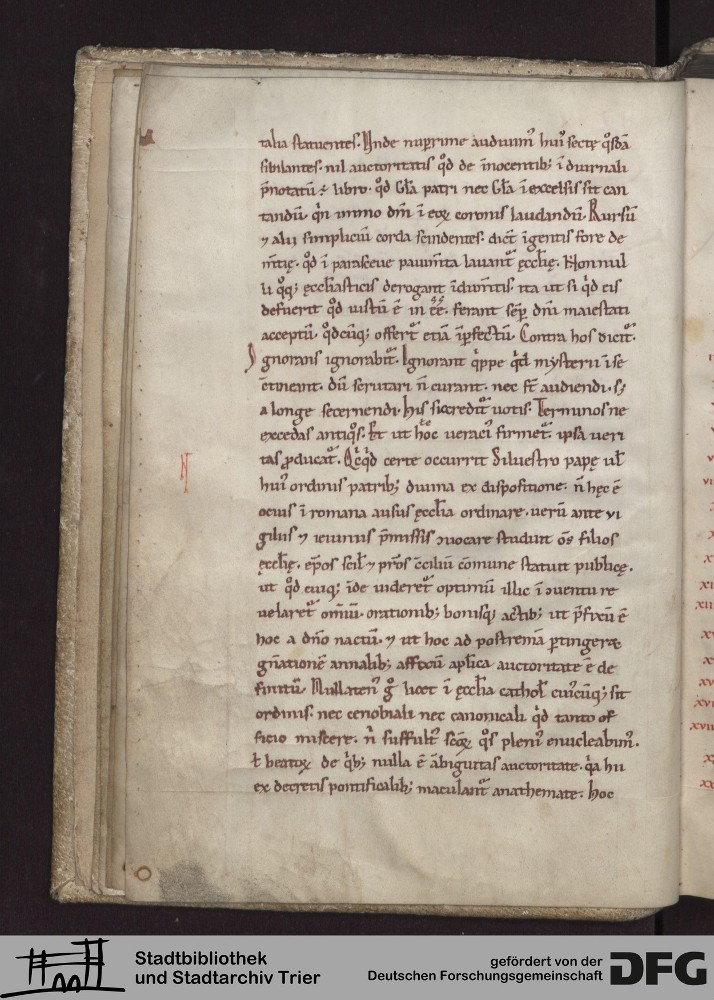 talia statuentes. Vnde nup̄rime audiuim᷒ hui᷒ sectę qͦsdā
sibilantes. nil auctoritatis qͦd de īnocentib; ī diurnali
p̄notatū ÷ libro. qͦd Gl̄a patri nec Gl̄a ī excelsis sit can
tandū. qͥn immo dn̄i ī eoꝝ coronis laudandū. Rursū
⁊ alii simpliciū corda scindentes. dict̄ īgentis fore de
m̄tię. qͦd ī parasceue pauim̄ta lauant᷑ ęcclię. Nonnul
li qͦq; ecclīasticis derogant īdum̄tis. ita ut si qͥd eis
defuerit qͦd uistū ē in ferant sēp dn̄i maiestati
acceptū. qͦdcūq; offert᷑ etiā īp̄fectū. Contra hos dicit᷑.
Ignorans ignorabit᷑. Ignorant qͥppe qͥd mysterii ī se
ɔ̄tineant. dū scrutari n̄ curant. nec st̄ audiendi. s;
a longe secernendi. his si credit᷑ uotis. Terminos ne
excedas antiqͦs. Et ut hͦc ueraci᷒ firmet᷑. ipsa ueri
tas ꝓducat᷑. Qͥcqͥd certe occurrit Siluestro papę ul̄
hui᷒ ordinis patrib; diuina ex dispositione. n̄ hęc ē
ocius ī romana ausus ęcclīa ordinare. uerū ante vi
giliis ⁊ ieiuniis p̄missis ɔuocare studuit oms filios
ęcclię. ep̄os scil̄ ⁊ pr̄os ɔ̄ciliū cōmune statuit publicę.
ut qͦd cuiq; īde uideret᷑ optimū illic ī ɔuentu re
uelaret᷑ omiū. orationib; bonisq; actib; ut p̄fixū ē
hoc a dn̄o nactū. ⁊ ut hoc ad postremā ꝑtingeræ
gn̄ationē annalib; affixū ap̄lica auctoritate ē de
finitū. Nullaten᷒ gͦ licet ī ęcclīa cathol̄ cuicūq; sit
ordinis. nec cenobiali nec canonicali qͥd tanto of
ficio miscere. n̄ suffult᷒ scōꝝ qͦs pleni᷒ enucleabim᷒.
ł beatoꝝ de qͥb; nulla ē ābiguitas auctoritate. qͥa hii
ex decretis pontificalib; maculant᷑ anathemate. hoc
N
Stadtbibliothek
und Stadtarchiv Trier
gefördert von der
Deutschen Forschungsgemeinschaft
DFG